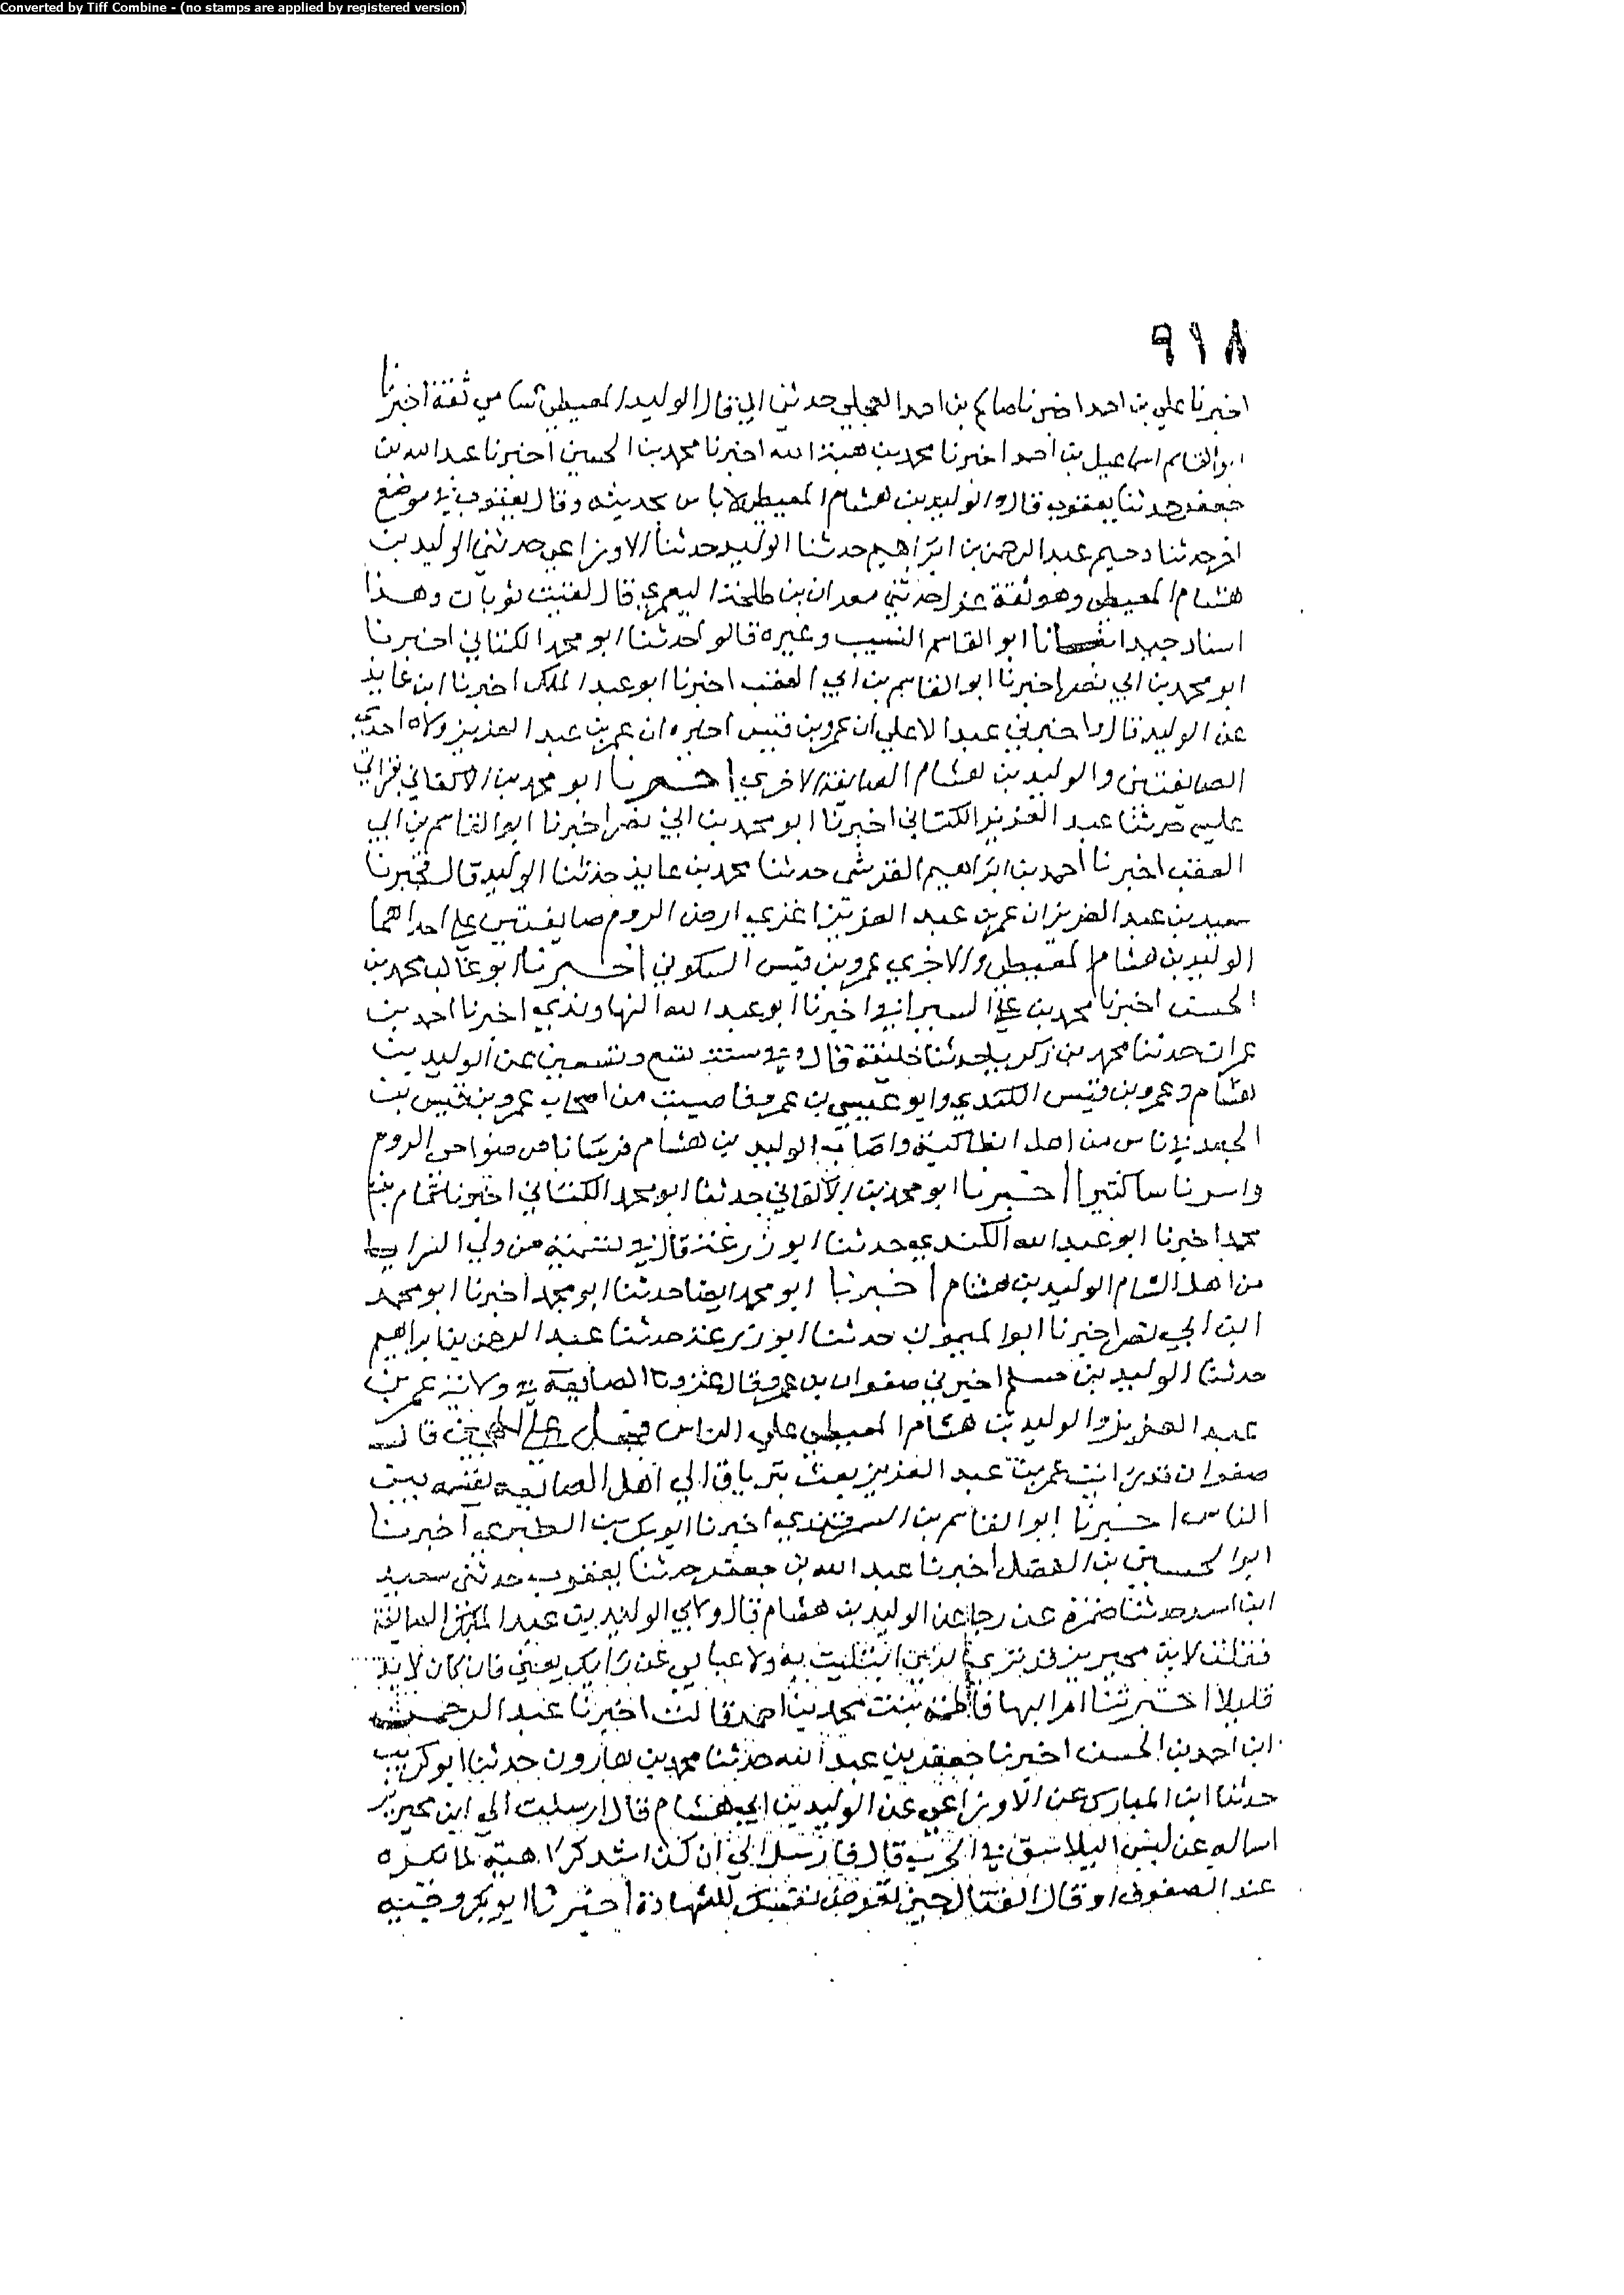 Converted by Tiff Combine - (no stamps are applied by registered version)
٩١٨
اخبرنا علي بن احمد اخبرنا صالح بن احمد العجلي حدثني ابي قال الوليد المعيطي شامي ثقة اخبرنا
ابو القاسم اسماعيل بن احمد اخبرنا محمد بن هبة الله اخبرنا محمد بن الحسين اخبرنا عبد الله بن
جعفر حدثنا يعقوب قال والوليد بن هشام المعيطي لا باس بحديثه وقال يعقوب في موضع
اخر حدثنا دحيم عبد الرحمن بن ابراهيم حدثنا الوليد حدثنا الاوزاعي حدثني الوليد بن
هشام المعيطي وهو ثقة عدل حدثني معدان بن طلحة اليعمري قال لقيت ثوبان وهذا
اسناد جيد انبانا ابو القاسم النسيب وغيره قالوا حدثنا ابو محمد الكتاني اخبرنا
ابو محمد بن ابي نصر اخبرنا ابو القاسم بن ابي العقب اخبرنا ابو عبد الملك اخبرنا ابن عايذ
عن الوليد قال واخبرني عبد الاعلي ان عمرو بن قيس اخبره ان عمر بن عبد العزيز ولاه احدي
الصايفتين والوليد بن هشام الصايفة الاخري اخبرنا ابو محمد بن الاكفاني بقراتي
عليه حدثنا عبد العزيز الكتاني اخبرنا ابو محمد بن ابي نصر اخبرنا ابو القاسم بن ابي
العقب اخبرنا احمد بن ابراهيم القرشي حدثنا محمد بن عايذ حدثنا الوليد قال فخبرنا
سعيد بن عبد العزيز ان عمر بن عبد العزيز اغزي ارض الروم صايفتين علي احداهما
الوليد بن هشام المعيطي والاخري عمرو بن قيس السكوني اخبرنا ابو غالب محمد بن
الحسن اخبرنا محمد بن علي السيرافي اخبرنا ابو عبد الله النهاوندي اخبرنا احمد بن
عمران حدثنا محمد بن زكريا حدثنا خليفة قال وفي سنة تسع وتسعين عن الوليد بن
هشام وعمرو بن قيس الكندي وابو عبيس بن عمرو فاصيب من اصحاب عمرو بن قيس بن
الجعد في ناس من اهل انطاكية واصاب الوليد بن هشام من ضواحي الروم
واسر ناسا كثيرا اخبرنا ابو محمد بن الاكفاني حدثنا ابو محمد الكتاني اخبرنا تمام بن
محمد اخبرنا ابو عبد الله الكندي حدثنا ابو زرعة قال في تسمية من ولي السرايا
من اهل الشام الوليد بن هشام اخبرنا ابو محمد ايضا حدثنا ابو محمد اخبرنا ابو محمد
ابن ابي نصر اخبرنا ابو الميمون حدثنا ابو زرعة حدثنا عبد الرحمن بن ابراهيم
حدثنا الوليد بن مسلم اخبرني صفوان بن عمرو قال غزونا الصايفة في ولاية عمر بن
عبد العزيز والوليد بن هشام المعيطي علي الناس قال
صفوان قد رايت عمر بن عبد العزيز بعث بترياق الي اهل الصايفة يقسم بين
الناس اخبرنا ابو القاسم بن السمرقندي اخبرنا ابو بكر بن الطبري اخبرنا
ابو الحسين بن الفضل اخبرنا عبد الله بن جعفر حدثنا يعقوب حدثني سعيد
ابن اسد حدثنا ضمرة عن رجا عن الوليد بن هشام قال ولاني الوليد بن عبد الملك الصايفة
فقلت لابن محيريز قد تري الذي ابتليت به ولا غنا بي عن رايك يعني فان كان لا بد
قليلا اخبرتنا ام البها فاطمة بنت محمد بن احمد قالت اخبرنا عبد الرحمن
ابن احمد بن الحسن اخبرنا جعفر بن عبد الله حدثنا محمد بن هارون حدثنا ابو كريب
حدثنا ابن المبارك عن الاوزاعي عن الوليد بن ابي هشام قال ارسلت الي ابن محيريز
اساله عن لبس اليلامق في الحرب قال فارسل الي ان كن اشد كراهية لما تكره
عند الصفوف وقال القتال حين تعرض نفسك للشهادة اخبرنا ابو بكر وجيه